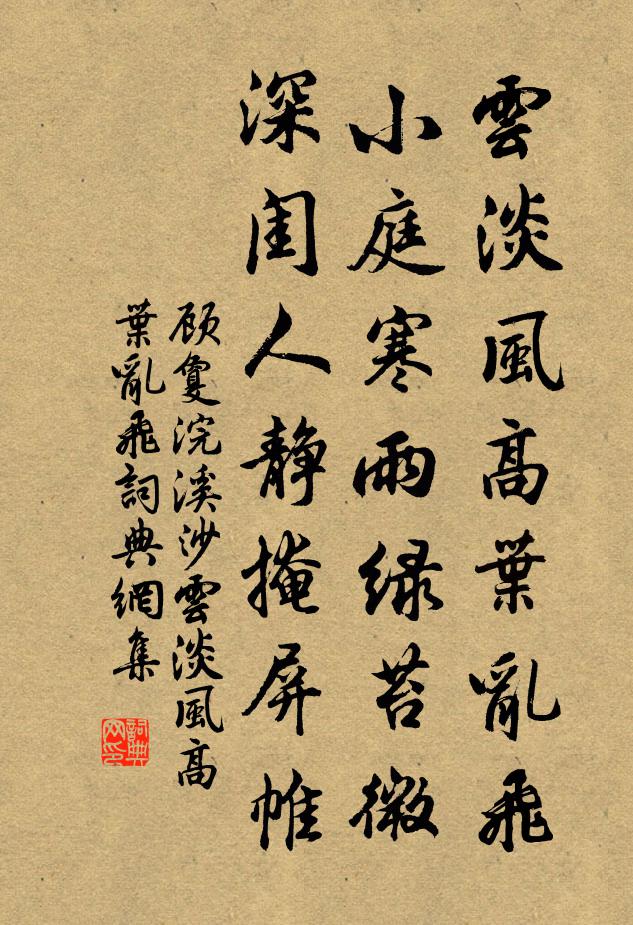 雲淡風高葉亂飛
小庭寒雨綠苔微
深閨人靜掩屏帷
顧敻浣溪沙雲淡風高
葉亂飛詞典網集
詞典网印